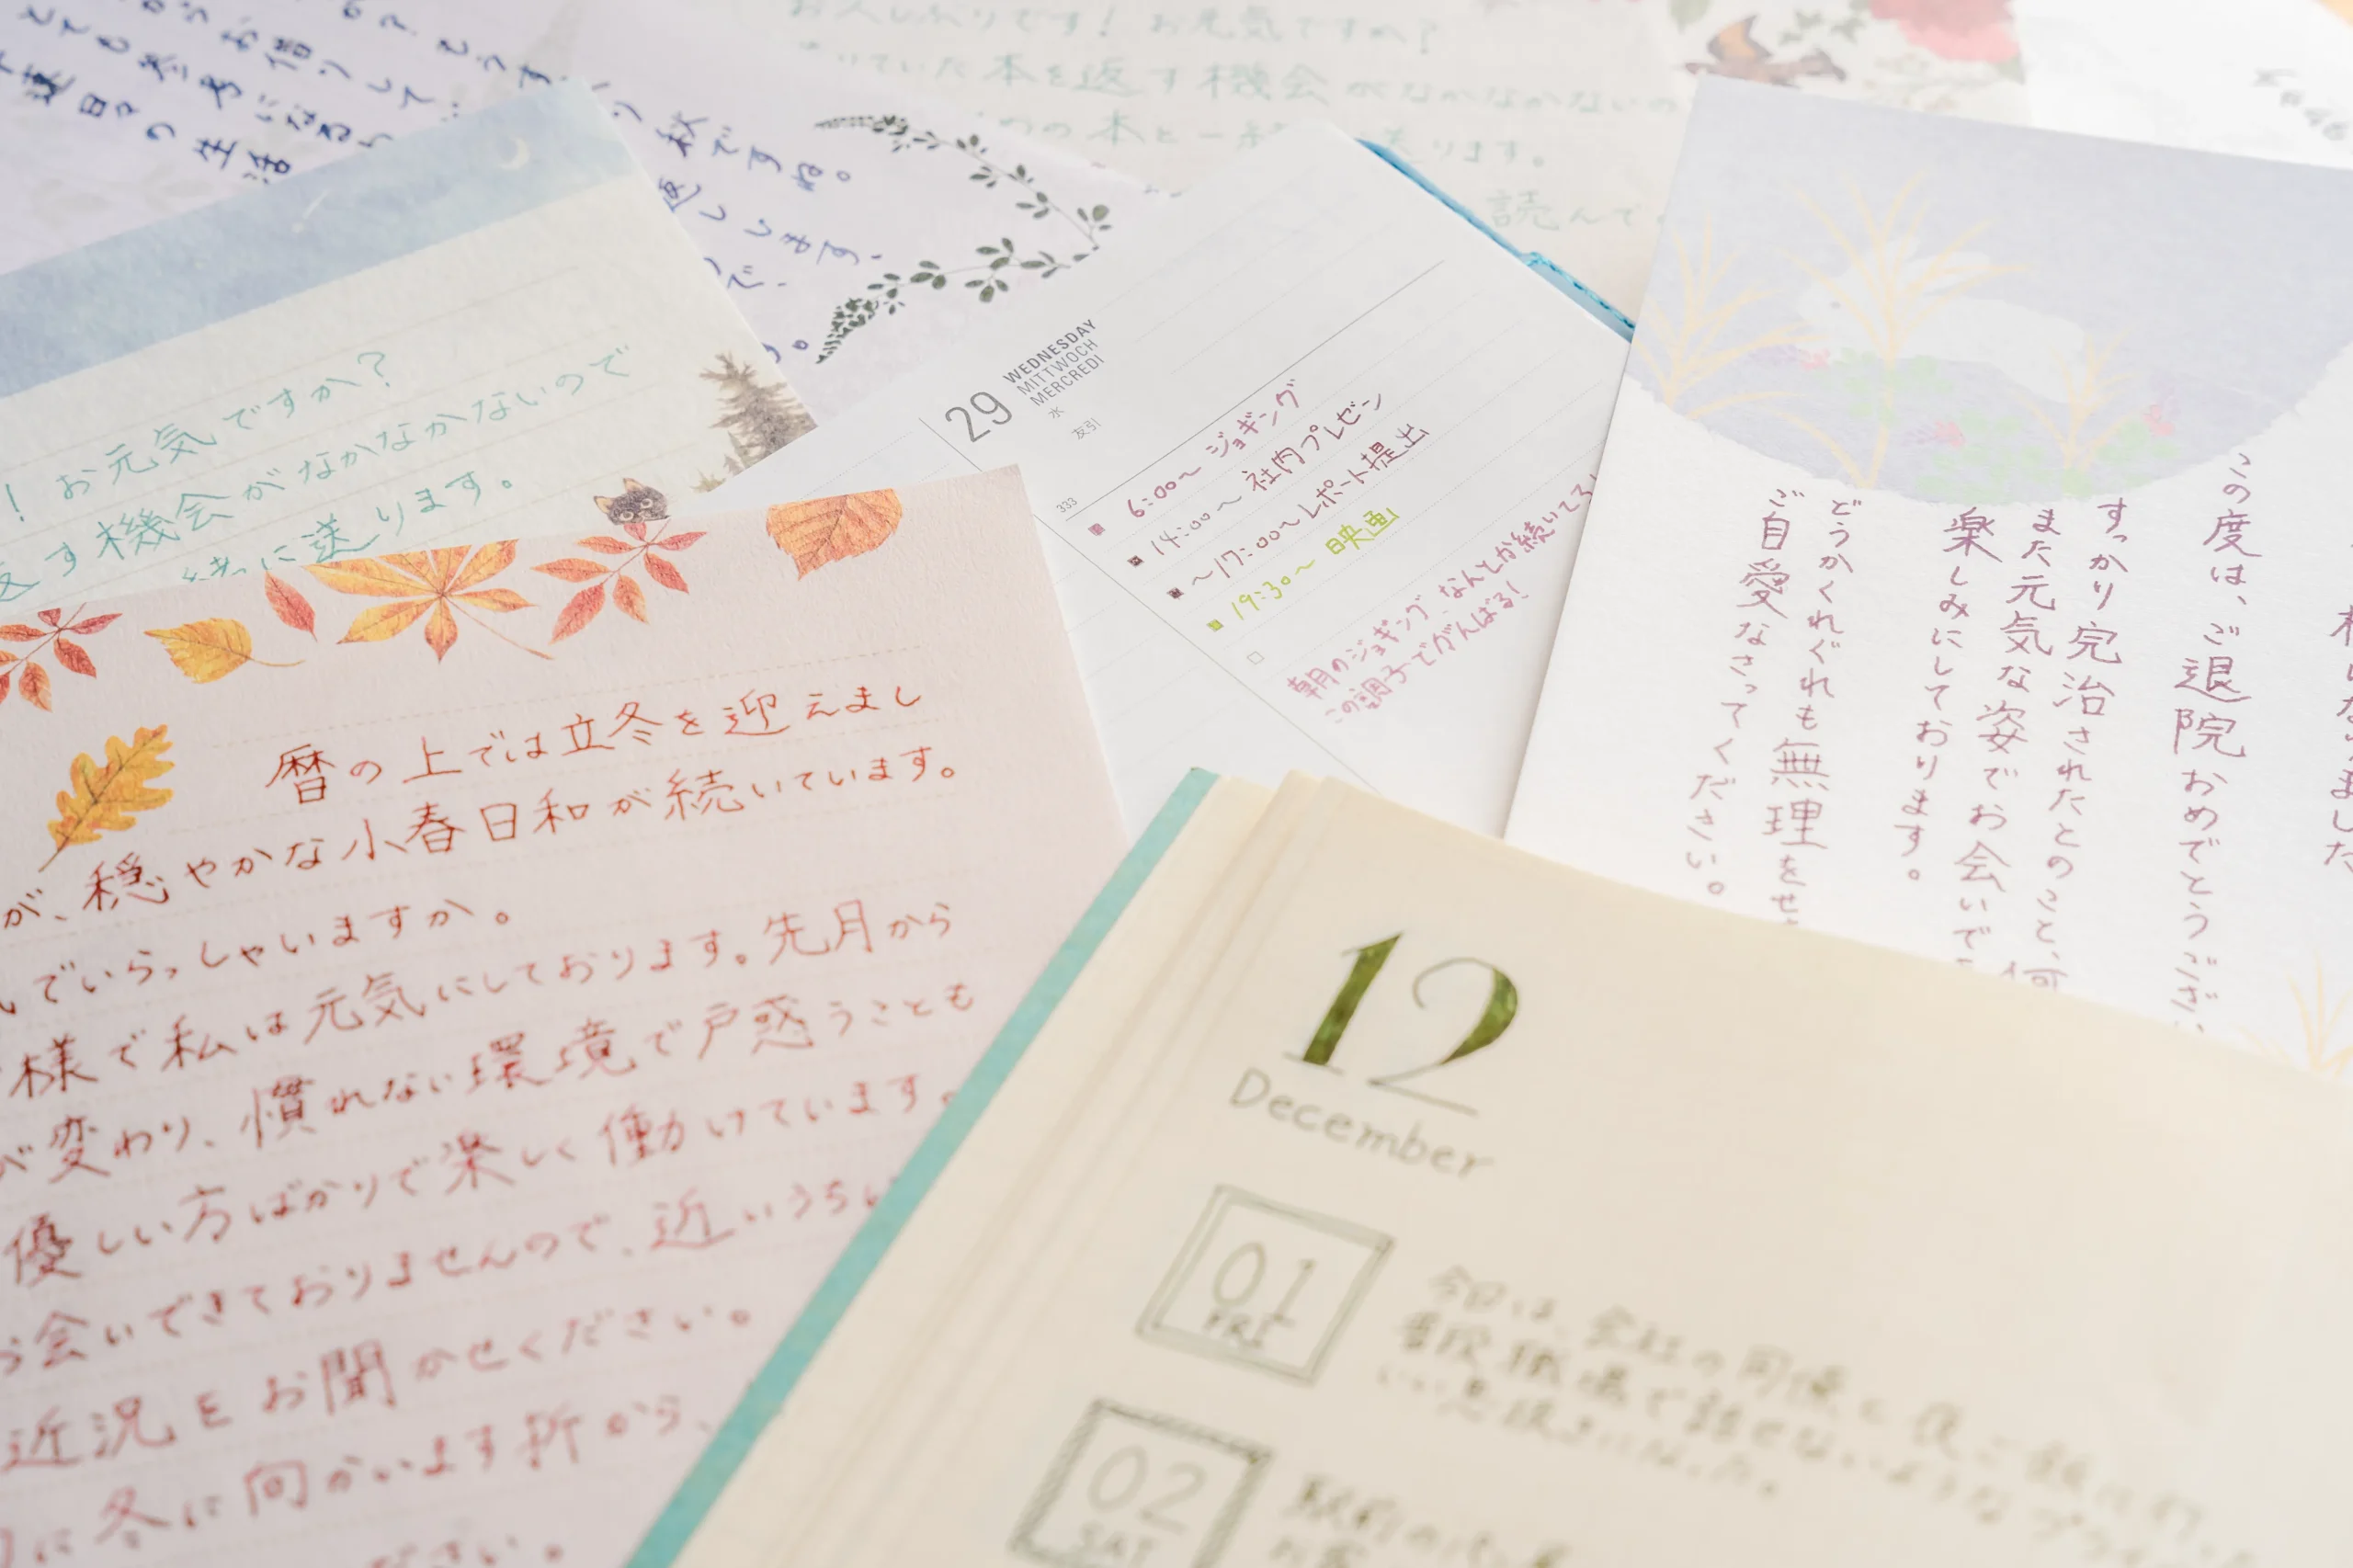 の？ もうすっかり秋ですね。
お借りして
返しします、
とても参考になる
日々の生活
お久しぶりです！ お元気ですか？
ていた本を返す機会がなかなかないの
の本と一緒に送ります。
読んで
！ お元気ですか？
返す機会がなかなかないので
緒に送ります。
29
WEDNESDAY
MITTWOCH
MERCREDI
水
友引
333
6:00〜 ジョギング
14:00〜 社内プレゼン
〜17:00〜レポート提出
19:30〜 映画
朝のジョギング、なんとか続いてる！
この調子でがんばる！
この度は、ご退院おめでとうござい
すっかり完治されたとのこと、何
また元気な姿でお会いでき
楽しみにしております。
どうかくれぐれも無理をせ
ご自愛なさってください。
暦の上では立冬を迎えまし
が、穏やかな小春日和が続いています。
でいらっしゃいますか。
様で私は元気にしております。先月から
が変わり、慣れない環境で戸惑うことも
優しい方ばかりで楽しく働けています。
お会いできておりませんので、近いうちに
近況をお聞かせください。
に冬に向かいます折から、
ださい。
12
December
01
FRI
今日は、会社の同僚と夜ご飯に行
普段職場で話せないようなプライ
いい息抜きになった。
02
SAT
駅前の